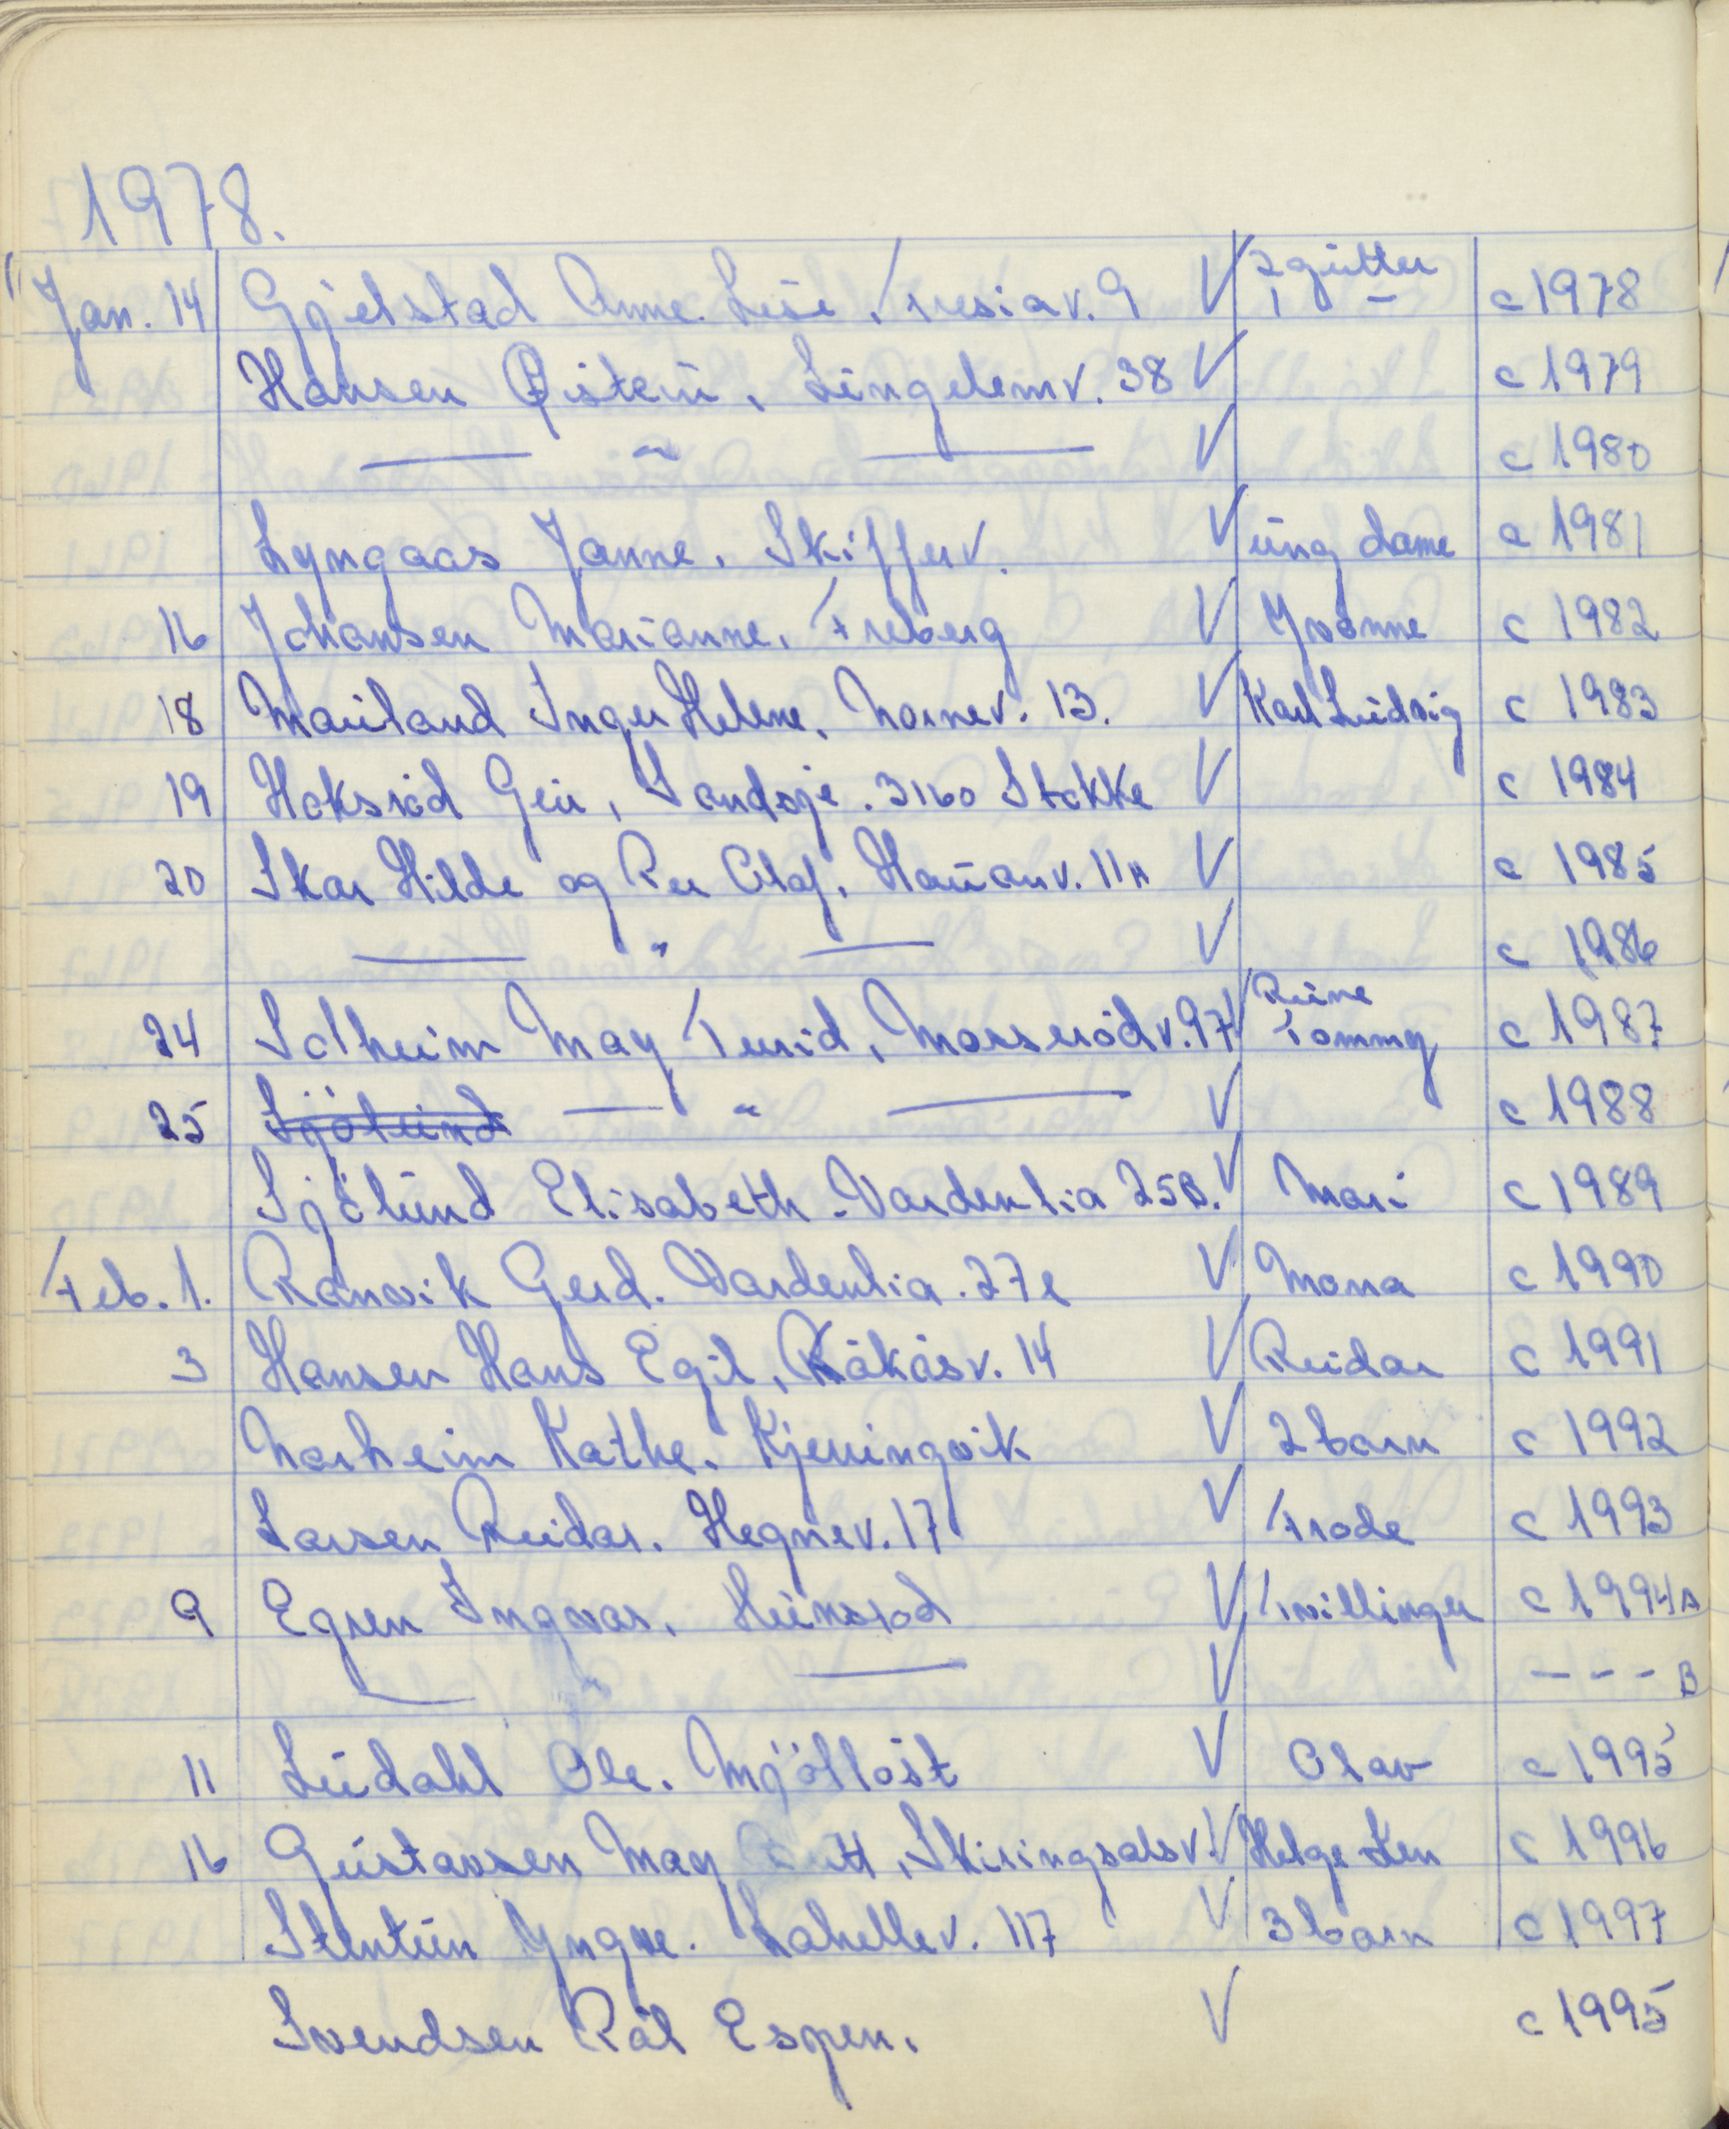 1978.
Jan. 14 Gjelstad Anne Lise, Fresiav. 9 V 2 gutter 1 – c 1978
Hansen Øistein, Lingelemv. 38 V c 1979
— " — V c 1980
Lyngaas Janne. Skifferv. V ung dame c 1981
16 Johansen Marianne, Freberg V Yvonne c 1982
18 Mauland Inger Helene, Nornev. 13. V Karl Ludvig c 1983
19 Hoksrød Geir, Sundsje. 3160 Stokke V c 1984
20 Skar Hilde og Per Olaf, Haukanv. 11A V c 1985
— " — V c 1986
24 Solheim May Turid, Mosserödv. 97 V Rune Tommy c 1987
25 Sjölund — " — V c 1988
Sjölund Elisabeth. Vardenlia 25B. V Mari c 1989
Feb. 1. Ranvik Gerd. Vardenlia. 27e V Mona c 1990
3 Hansen Hans Egil, Råkåsv. 14 V Reidar c 1991
Norheim Kathe. Kjerringvik V 2 barn c 1992
Larsen Reidar. Hegnev. 17 V Frode c 1993
9 Egren Ingvar, Heimsrød V Tvillinger c 1994A
— " — V - - - B
11 Lúdahl Ole. Mjölløst V Olav c 1995
16 Gustavsen May Britt, Skiringsalsv. V Helge Ken c 1996
Stentun Yngve. Lahellev. 117 V 3 barn c 1997
Svendsen Pål Espen. V c 1995